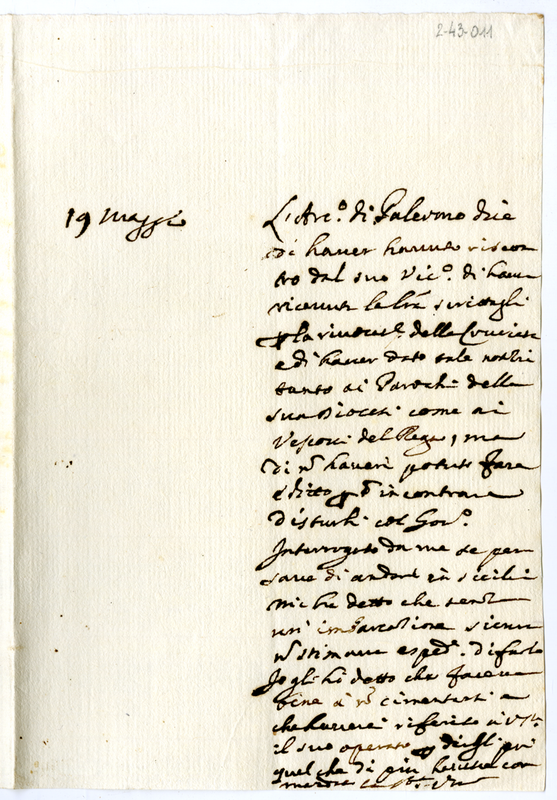 2-43-011
19 Maggio
L'Arc.o di Palermo dice
di haver havuto riscon
tro dal suo Vic.o di haver
ricevuta la lra scrittagli
p la rivocat. della Crociata
e di haver dato tale notitia
tanto ai Parochi della
sua Diocesi come ai
Vescovi del Regno, ma
di no haver potuto fare
editto p no incontrare
disturbi col Gov.o
Interrogato da me se pen
sava di andare in Sicilia
mi ha detto che senza
un' imbarcatione sicura
no stimava esped. di farlo
Io gli hò detto che faceva
bene à no cimentarsi e
che haverei riferito à
il suo operato p
quel che di più havesse com